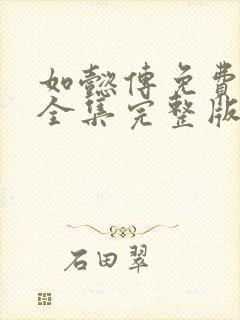 如懿传免費
全集完整版
石田翠